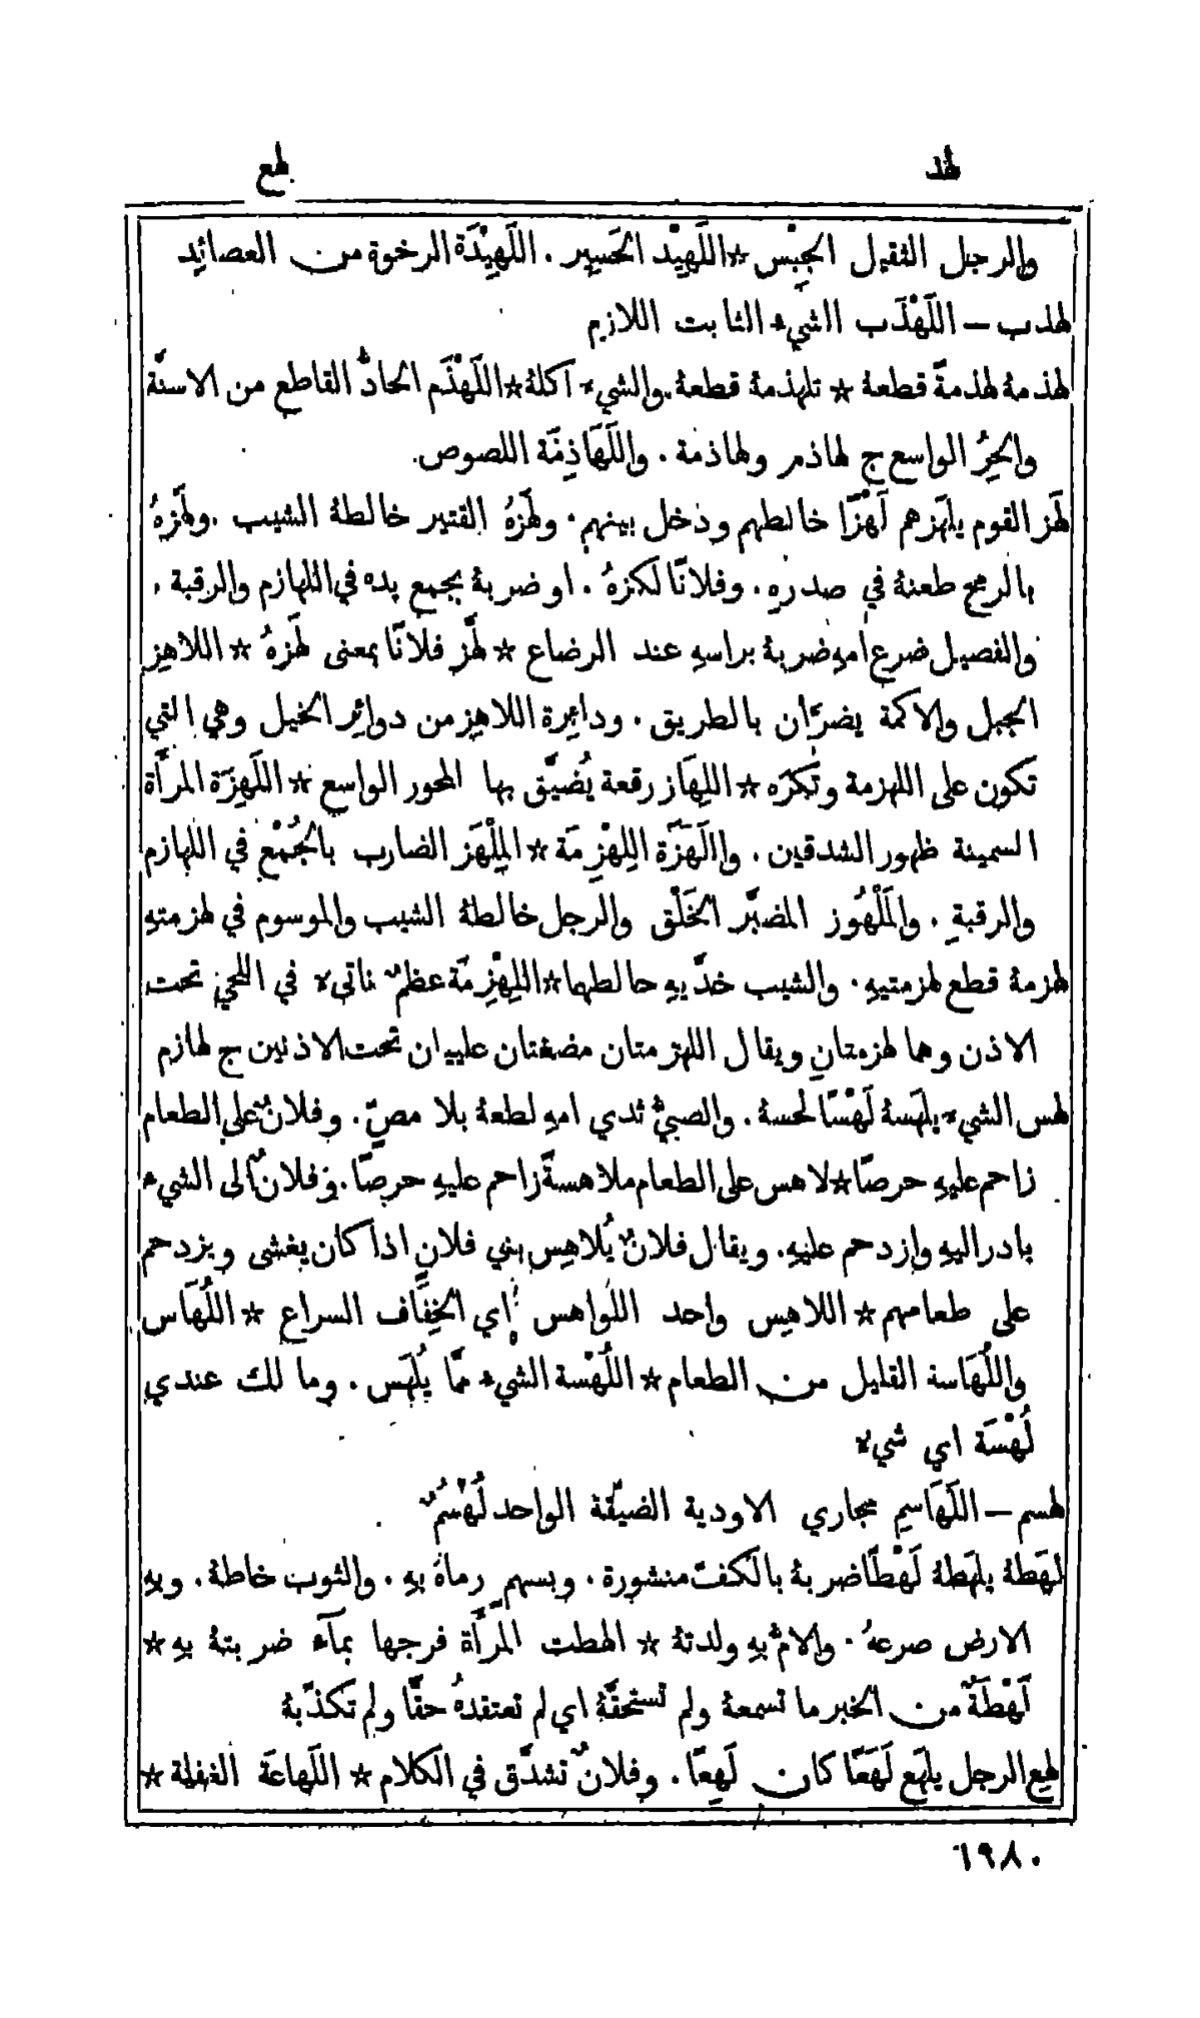 لهد
لهع
والرجل الثقيل الجِبْس ☆ اللَهِيْد الحَسِير . اللَهِيْدَة الرخوة من العصائِد
لهذب — اللَهْذَب الشيء الثابت اللازم
لهذمهُ لهذمةً قطعهُ ☆ تلهذمهُ قطعهُ . والشيء اكلهُ ☆ اللَهْذَم الحادُّ القاطع من الاسنَّة
والحِرُ الواسع ج لهاذم ولهاذمة . واللَهَاذِمَة اللصوص .
لَهَز القوم يلهَزهم لَهْزًا خالطهم ودخل بينهم . ولَهَزهُ القتير خالطهُ الشيب . ولَهَزهُ
بالرمح طعنهُ في صدرهِ . وفلانًا لكزهُ . او ضربهُ بجمع يده في اللهازم والرقبة .
والفصيل ضرع امهِ ضربهُ براسهِ عند الرضاع ☆ لهَّز فلانًا بمعنى لَهَزهُ ☆ اللاهِز
الجبل والاكمة يضرَّان بالطريق . ودائِرة اللاهِز من دوائِر الخيل وهي التي
تكون على اللهزمة وتُكرَه ☆ اللِهَاز رقعة يُضيَّق بها المحور الواسع ☆ اللَهِزَة المرأَة
السمينة ظهور الشدقين . واللَهَزَة اللِهْزِمَة ☆ المِلْهَز الضارب بالجُمْع في اللهازم
والرقبةِ . والمَلْهُوز المضبَّر الخَلْق والرجل خالطهُ الشيب والموسوم في لهزمتهِ
لهزمهُ قطع لهزمتيهِ . والشيب خدَّيهِ خالطهما ☆ اللِهْزِمَة عظمٌ ناتىء في اللحي تحت
الاذن وهما لهزمتانِ ويقال اللهزمتان مضغتان عليبان تحت الاذنين ج لهازم
لهس الشيء يلهَسهُ لَهْسًا لحسهُ . والصبيُّ ثدي امهِ لطعهُ بلا مصٍّ . وفلانٌ على الطعام
زاحم عليهِ حرصًا ☆ لاهس على الطعام ملاهسةً زاحم عليهِ حرصًا . وفلانٌ الى الشيء
بادر اليهِ وازدحم عليهِ . ويقال فلانٌ يُلاهِس بني فلانٍ اذا كان يغشى ويزدحم
على طعامهم ☆ اللاهِس واحد اللَواهس اي الخِفَاف السراع ☆ اللُهَاس
واللُهَاسة القليل من الطعام ☆ اللُهْسة الشيء ممَّا يُلهَس . وما لك عندي
لُهْسَة اي شيء
لهسم — اللَهَاسِم مجاري الاودية الضيّقة الواحد لُهْسُمٌ
لهَطهُ يلهَطهُ لَهْطًا ضربهُ بالكفّ منشورة . وبسهمٍ رماهُ بهِ . والثوب خاطهُ . وبهِ
الارض صرعهُ . والامُّ بهِ ولدتهُ ☆ الهطت المرأَة فرجها بمآء ضربتهُ بهِ ☆
لَهْطَةٌ من الخبر ما تسمعهُ ولم تستحقَّهُ اي لم تعتقدهُ حقًّا ولم تكذّبهُ
لهِع الرجل يلهَع لَهَعًا كان لَهِعًا . وفلانٌ تشدَّق في الكلام ☆ اللَهاعَة الغفلة ☆
١٩٨٠